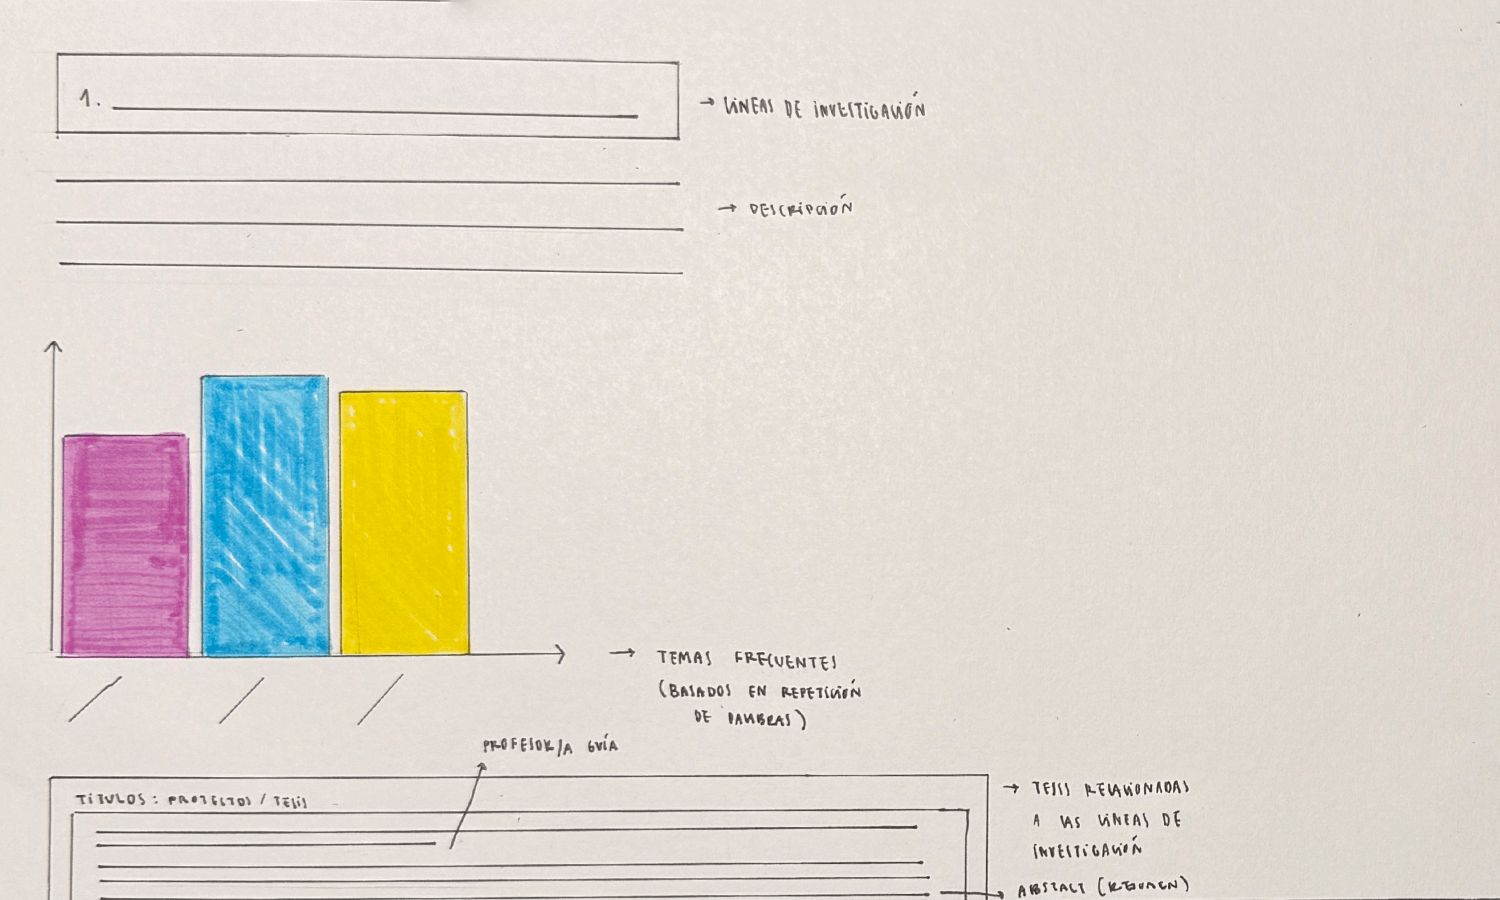 1.
→ LÍNEAS DE INVESTIGACIÓN
→ DESCRIPCIÓN
→ TEMAS FRECUENTES
(BASADOS EN REPETICIÓN
DE PALABRAS)
PROFESOR/A GUÍA
TÍTULOS: PROYECTOS / TESIS
→ TESIS RELACIONADAS
A LAS LÍNEAS DE
INVESTIGACIÓN
ABSTACT (RESUMEN)